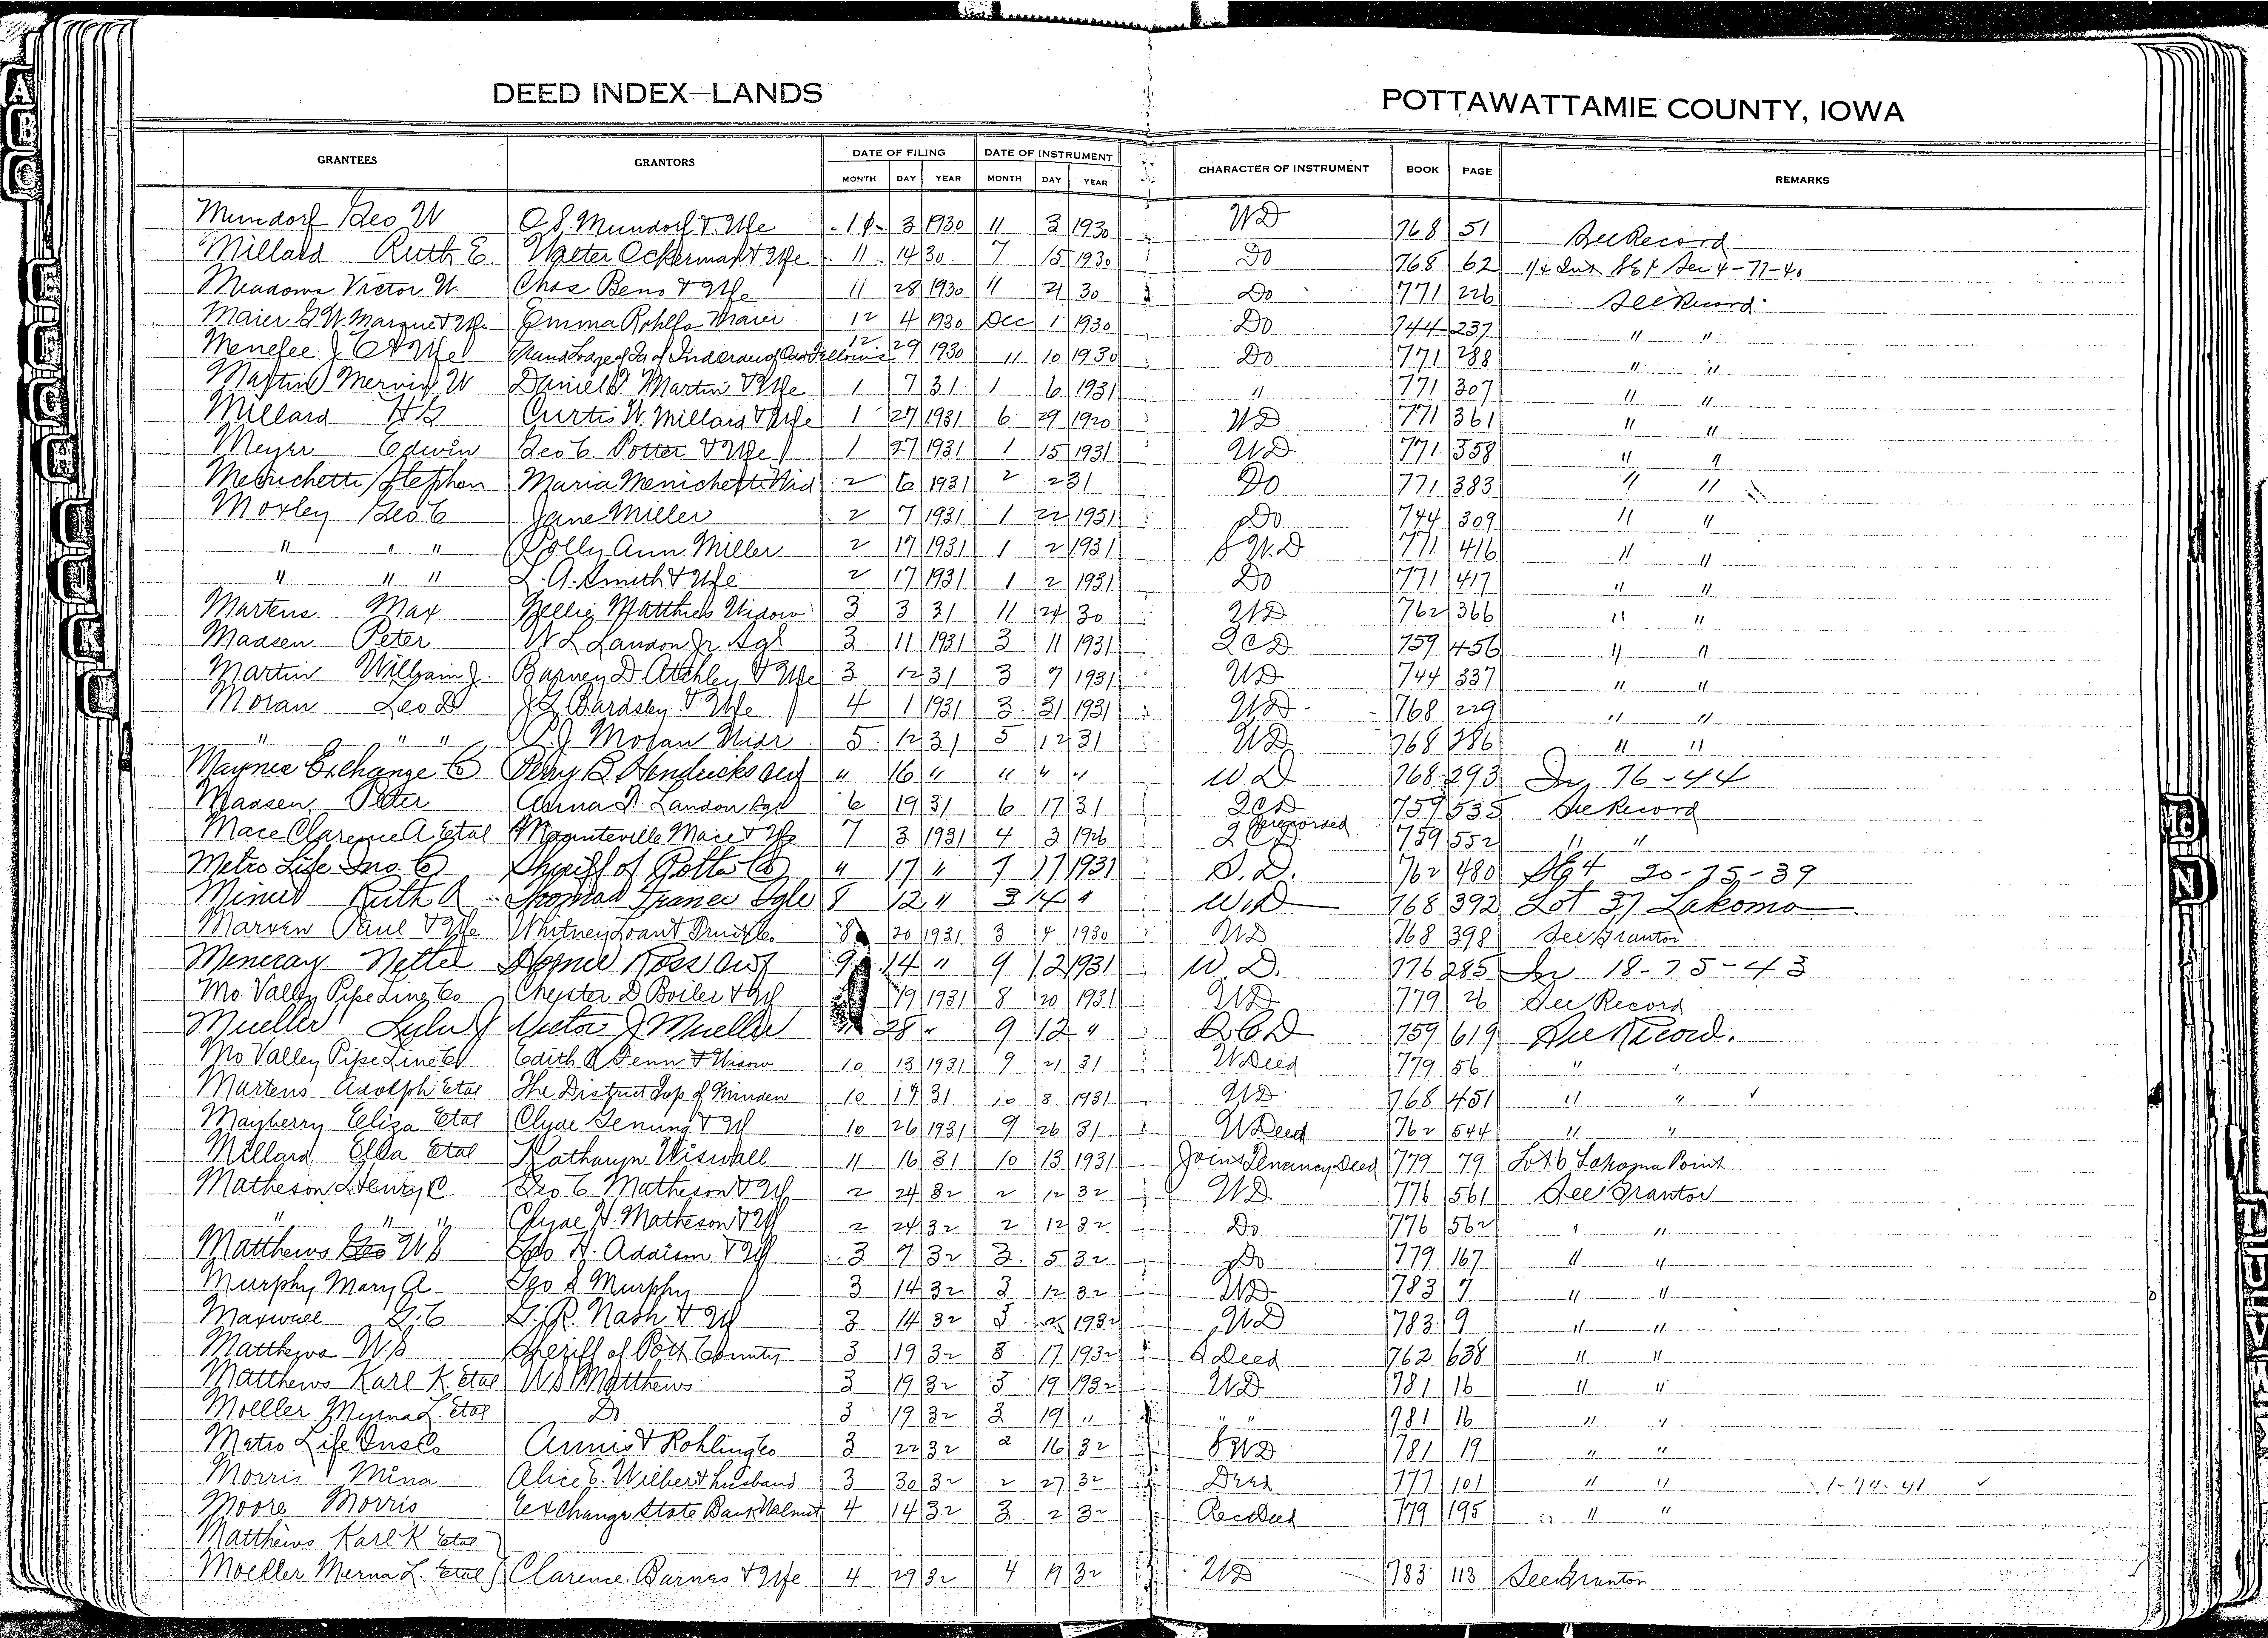 DEED INDEX—LANDS
POTTAWATTAMIE COUNTY, IOWA
GRANTEES GRANTORS DATE OF FILING DATE OF INSTRUMENT CHARACTER OF INSTRUMENT BOOK PAGE REMARKS
MONTH DAY YEAR MONTH DAY YEAR
Mundorf Geo W C.S. Mundorf & Wfe 3 1930 11 3 1930 WD 768 51 See Record
Millard Ruth E. Walter Ockerman & Wfe 11 14 30 7 15 1930 Do 768 62 1/4 Int Sec 4-77-40
Meadows Victor W. Chas Beno & Wfe 11 28 1930 11 21 30 Do 771 226 See Record
Maier G.W. & Wfe Emma Rohlfs Maier 12 4 1930 Dec 1 1930 Do 744 237 " "
Menefee J. & Wfe Grand Lodge of Ia of Fellows 12 29 1930 11 10 1930 Do 771 288 " "
Martin Mervin W Daniel Martin & Wfe 1 7 31 1 6 1931 " 771 307 " "
Millard H G Curtis W. Millard & Wfe 1 27 1931 6 29 1920 WD 771 361 " "
Meyer Edwin Geo C. Potter & Wfe 1 27 1931 1 15 1931 WD 771 358 " "
Menichetti Stephen Maria Menichetti Wid 2 6 1931 2 2 31 Do 771 383 " "
Moxley Geo C Jane Miller 2 7 1931 1 22 1931 Do 744 309 " "
" " " Polly Ann Miller 2 17 1931 1 2 1931 S W.D 771 416 " "
" " " L. A. Smith & Wfe 2 17 1931 1 2 1931 Do 771 417 " "
Martens Max Nellie Matthies Widow 3 3 31 11 24 30 WD 762 366 " "
Madsen Peter W L Landon Jr. Sgl 3 11 1931 3 11 1931 QCD 759 456 " "
Martin William J. Barney D Atchley & Wfe 3 12 31 3 7 1931 WD 744 337 " "
Moran Leo D J L Bardsley & Wfe 4 1 1931 3 31 1931 WD 768 229 " "
" " " P.J. Moran Widr 5 12 31 5 12 31 WD 768 286 " "
Maynes Exchange Co Perry B Hendricks " 16 " " " " WD 768 293 In 76-44
Madsen Peter Anna Landon Sgl 6 19 31 6 17 31 QCD 759 535 See Record
Mace Clarence A Etal Mounteville Mace & Wfe 7 3 1931 4 3 1926 Rerecorded QCD 759 552 " "
Metro Life Ins. Co Sheriff of Potta Co " 17 " 7 17 1931 S.D. 762 480 SE4 20-75-39
Ruth A Thomas Sgle 8 12 " 3 14 " WD 768 392 Lot 37 Lakoma
Marven Paul & Wfe Whitney Loan & Trust Co 8 20 1931 3 4 1930 WD 768 398 See Grantor
Meneray Nettie Ross 9 14 " 9 12 1931 W.D. 776 285 In 18-75-43
Mo. Valley Pipe Line Co Chester D Boiler & Wf 19 1931 8 20 1931 WD 779 26 See Record
Mueller Lulu J Victor J Mueller 28 " 9 12 " QCD 759 619 See Record.
Mo Valley Pipe Line Co Edith Fenn Widow 10 13 1931 9 21 31 W Deed 779 56 " "
Martens Adolph Etal The District Twp of Minden 10 17 31 10 8 1931 WD 768 451 " "
Mayberry Eliza Etal Clyde Genung & Wf 10 26 1931 9 26 31 W Deed 762 544 " "
Millard Ella Etal Katharyn Wiswall 11 16 31 10 13 1931 Joint Tenancy Deed 779 79 Lot 6 Lakoma Point
Matheson Henry C Geo C Matheson & Wf 2 24 32 2 12 32 WD 776 561 See Grantor
" " " Clyde H. Matheson & Wf 2 24 32 2 12 32 Do 776 562 " "
Matthews W S Geo H. Addison & Wf 3 7 32 3 5 32 Do 779 167 " "
Murphy Mary A Geo S Murphy 3 14 32 3 12 32 WD 783 7 " "
Maxwell G. C G. R. Nash & Wf 3 14 32 3 1932 WD 783 9 " "
Matthews W.S Sheriff of Pott County 3 19 32 3 17 1932 S Deed 762 638 " "
Matthews Karl K Etal W S Matthews 3 19 32 3 19 1932 WD 781 16 " "
Moeller Myrna L. Etal Do 3 19 32 3 19 " " " 781 16 " "
Metro Life Ins Co Annis & Rohling Co 3 22 32 2 16 32 S WD 781 19 " "
Morris Mina Alice E. Wilber & husband 3 30 32 2 27 32 Deed 777 101 " " 1-74-41
Moore Morris Exchange State Bank Walnut 4 14 32 3 2 32 Rec Deed 779 195 " "
Matthews Karl K Etal
Moeller Merna L. Etal Clarence Barnes & Wfe 4 29 32 4 19 32 WD 783 113 See Grantor
A
B
C
E
F
G
H
I
J
K
L
Mc
N